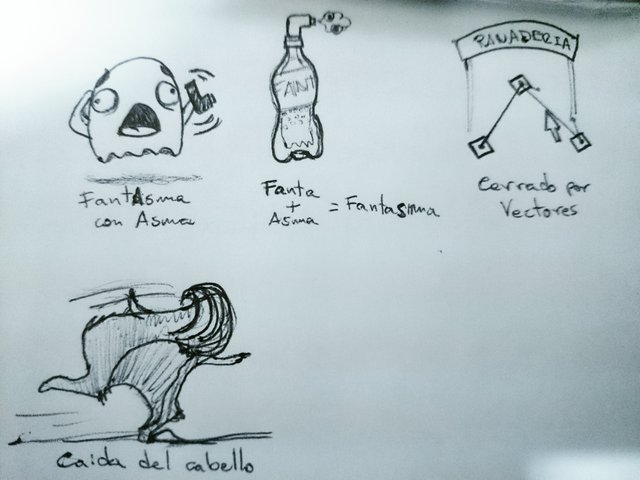 PANADERIA
FANT
Fantasma
con Asma
Fanta
+
Asma
= Fantasma
Cerrado por
Vectores
Caida del cabello